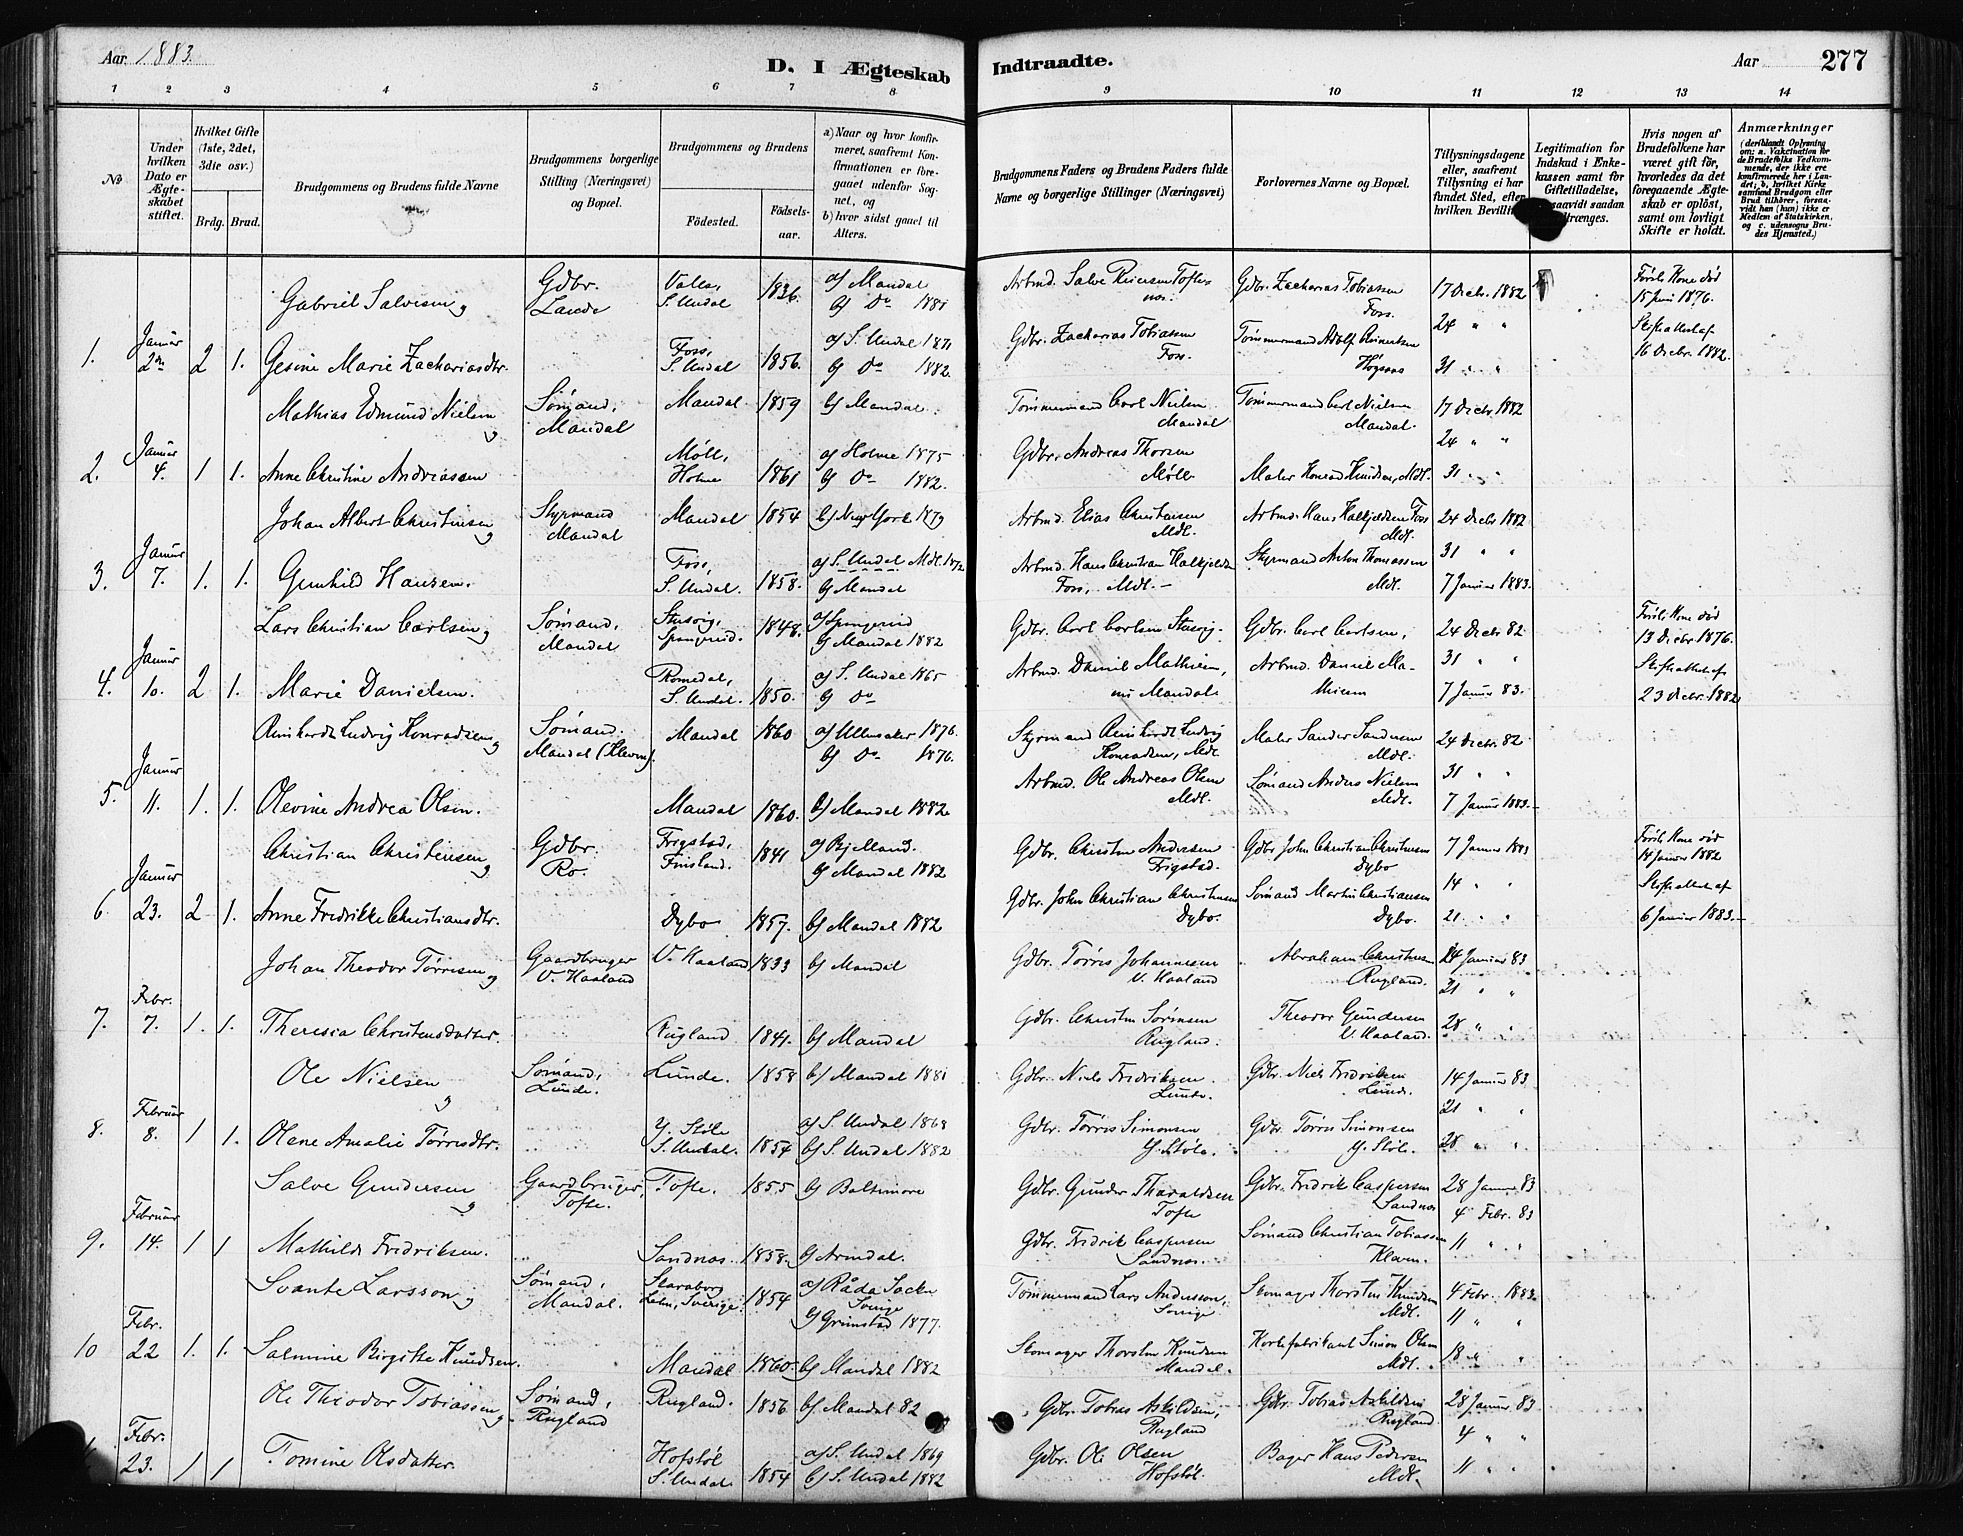 Aar 1883.
D. I Ægteskab Indtraadte.
Aar
277
1 2 3 4 5 6 7 8 9 10 11 12 13 14
No
Under hvilken Dato er Ægteskabet stiftet.
Hvilket Gifte (1ste, 2det, 3die osv.)
Brdg. Brud.
Brudgommens og Brudens fulde Navne
Brudgommens borgerlige Stilling (Næringsvei) og Bopæl.
Brudgommens og Brudens
Fødested.
Fødselsaar.
a) Naar og hvor konfirmeret, saafremt Konfirmationen er foregaaet udenfor Sognet, og
b) hvor sidst gaaet til Alters.
Brudgommens Faders og Brudens Faders fulde Navne og borgerlige Stillinger (Næringsvei)
Forlovernes Navne og Bopæl.
Tillysningsdagene eller, saafremt Tillysning ei har fundet Sted, efter hvilken Bevilling
Legitimation for Indskud i Enkekassen samt for Giftetilladelse, saavidt saadan
Hvis nogen af Brudefolkene har været gift før, hvorledes da det foregaaende Ægteskab er opløst, samt om lovligt Skifte er holdt.
Anmærkninger
(deriblandt Oplysning om: a. Vakcination for de Brudefolks Vedkommende, der ikke ere konfirmerede her i Landet; b, hvilket Kirkesamfund Brudgom eller Brud tilhører, forsaavidt han (hun) ikke er Medlem af Statskirken, og c. udensogns Brudes Hjemsted.)
Gabriel Salvesen og Gdbr. Lande Valle, S. Undal 1836. a) Mandal b) Do 1881 Arbmd. Salve Gdbr. Zacharias Tobiassen Foss. 17 Decbr. 1882 Første Kone død 15 Juni 1876.
24 " "
1. Januar 2den 2 1. Gesine Marie Zachariasdtr. Foss, S. Undal 1856. a) S. Undal 1871 b) Do 1882. Gdbr. Zacharias Tobiassen Foss. Tømmermand Adolf Reinertsen 31 " " Skifteattest af 16 Decbr. 1882.
Mathias Edmund Nielsen og Sømand, Mandal Mandal 1859 b) Mandal. Tømmermand Carl Nielsen Mandal Tømmermand Carl Nielsen Mandal 17 Decbr 1882
24 " "
2. Januar 4. 1 1. Anne Christine Andreassen Møll, Holme 1861 a) Holme 1875 b) Do 1882. Gdbr. Andreas Thorsen Møll Maler Konrad Knudsen, Mdl. 31 " "
Johan Albert Christensen og Styrmand Mandal Mandal 1854 b) New York 1879 Arbmd. Elias Christensen Mdl. Arbmd. Hans Foss Mdl. 24 Decbr 1882
31 " "
3. Januar 7. 1. 1. Gunhild Hansen. Foss, S. Undal. 1858. a) S. Undal Mdl. 1872 b) Mandal Arbmd. Hans Christian Foss, Mdl. Styrmand Anton Thomassen Mdl. 7 Januar 1883.
Lars Christian Carlsen og Sømand, Mandal 1848. a) b) Mandal 1882 Gdbr. Carl Carlsen Gdbr. Carl Carlsen, 24 Decbr 82 Første Kone død 13 Decbr 1876.
31 " "
4. Januar 10. 2 1. Marie Danielsen. S. Undal. 1850. a) S. Undal 1865 b) Do Arbmd. Daniel Mathiesen, nu Mandal Arbmd. Daniel Mathiesen 7 Januar 83. Skifteattest af 23 Decbr. 1882
Reinhardt Ludvig Konradsen og Sømand. Mandal (Kleven). Mandal 1860 a) Ullensaker 1876. b) Do 1876. Styrmand Reinhardt Ludvig Konradsen, Mdl. Maler Sander Sandersen Mdl. 24 Decbr. 82
31 " "
5. Januar 11. 1. 1. Olevine Andrea Olsen. Mandal 1860. b) Mandal 1882 Arbmd. Ole Andreas Olsen Mdl. Sømand Anders Nielsen Mdl. 7 Januar 1883.
Christian Christensen og Gdbr. Ro. Frigstad, Finsland. 1841 a) Bjelland. b) Mandal 1882 Gdbr. Christen Andersen Frigstad. Gdbr. John Christian Christensen Dybo 7 Januar 1883 Første Kone død 14 Januar 1882
14 " "
6. Januar 23. 2 1. Anne Fredrikke Christiansdtr. Dybo 1857. b) Mandal 1882 Gdbr. John Christian Christensen Dybo. Sømand Martin Christiansen Dybo. 21 " " Skifteattest af 6 Januar 1883.
Johan Theodor Tørresen og Gaardbruger V. Haaland V. Haaland 1833 b) Mandal Gdbr. Tørris Johannesen V. Haaland Abraham Christensen Rugland. Januar 83
21 " "
7. Febr. 7. 1. 1. Theresia Christensdatter. Rugland 1841. b) Mandal Gdbr. Christen Sørensen Rugland. Theodor Gundersen V. Haaland. 28 " "
Ole Nielsen og Sømand, Lunde. Lunde. 1858 b) Mandal 1881 Gdbr. Niels Fredriksen Lunde. Gdbr. Niels Fredriksen Lunde. 14 Januar 83
21 " "
8. Februar 8. 1 1. Olene Amalie Tørresdtr. Y. Støle S. Undal. 1854 a) S. Undal 1868 b) S. Undal 1882 Gdbr. Tørris Simonsen Y. Støle. Gdbr. Tørris Simonsen Y. Støle. 28 " "
Salve Gundersen og Gaardbruger, Tofte. Tofte. 1855 b) Baltimore Gdbr. Gunder Tharaldsen Tofte Gdbr. Fredrik Caspersen Sandnæs 28 Januar 83
4 Febr. 83
9. Februar 14. 1 1 Mathilde Fredriksen. Sandnæs 1858. b) Arendal. Gdbr. Fredrik Caspersen Sandnæs. Sømand Christian Tobiassen Kleven. 11 " "
Svante Larsson og Sømand, Mandal. Skaraborg Lehn, Sverige 1854 a) Råda Socken Sverige b) Grimstad 1877. Tømmermand Lars Andersson, Sverige Skomager Thorsten Knudsen Mdl. 4 Febr. 1883.
11 " "
10 Febr. 22 1. 1. Salmine Birgitte Knudsen. Mandal 1860 b) Mandal 1882 Skomager Thorsten Knudsen Mandal. Simon Olsen Mdl. 18 " "
Ole Theodor Tobiassen og Sømand, Rugland Rugland. 1856 b) Mandal 82 Gdbr. Tobias Askildsen, Rugland Gdbr. Tobias Askildsen Rugland 28 Januar 83
4 " "
Febr. 23. 1 1 Tomine Olsdatter. Hofstøl S. Undal 1854 a) S. Undal 1869 b) S. Undal 1882 Gdbr. Ole Olsen Hofstøl. Bager Hans Pedersen Mdl. 11 " "